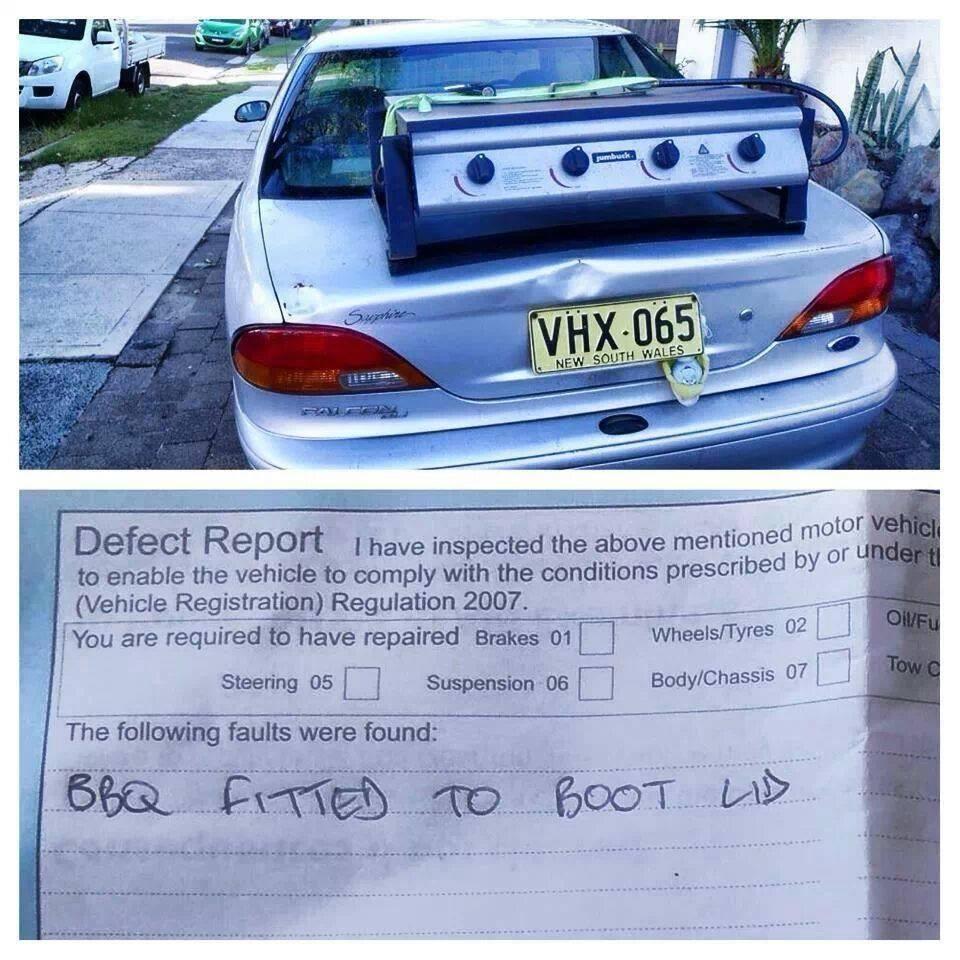 jumbuck
Sapphire
VHX·065
NEW SOUTH WALES
FALCON
Defect Report I have inspected the above mentioned motor vehicle
to enable the vehicle to comply with the conditions prescribed by or under
(Vehicle Registration) Regulation 2007.
You are required to have repaired Brakes 01 Wheels/Tyres 02
Steering 05 Suspension 06 Body/Chassis 07 Tow
The following faults were found:
BBQ FITTED TO BOOT LID